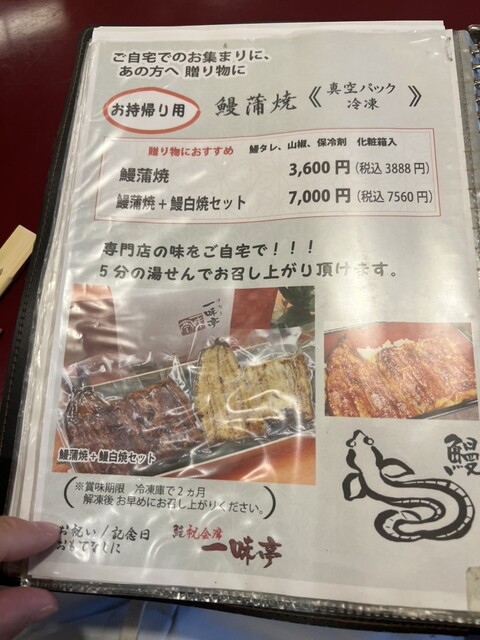 ご自宅でのお集まりに、
あの方へ 贈り物に
お持帰り用
鰻蒲焼 《真空パック 冷凍》
贈り物におすすめ 鰻タレ、山椒、保冷剤 化粧箱入
鰻蒲焼 3,600 円 (税込 3888 円)
鰻蒲焼 + 鰻白焼セット 7,000 円 (税込 7560 円)
専門店の味をご自宅で！！！
５分の湯せんでお召し上がり頂けます。
一味亭
鰻蒲焼＋鰻白焼セット
鰻
(※賞味期限 冷凍庫で２ヵ月
解凍後 お早めにお召し上がりください。)
お祝い / 記念日
おもてなしに
一味亭